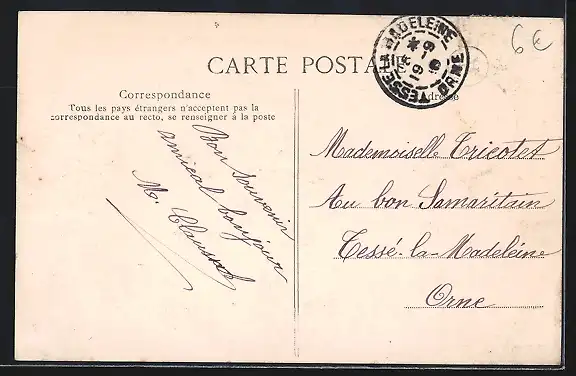 CARTE POSTALE
6€
TESSÉ LA MADELEINE
ORNE
Correspondance
Tous les pays étrangers n'acceptent pas la
correspondance au recto, se renseigner à la poste
Adresse
Bon souvenir
amical bonjour
M.
Mademoiselle Tricotet
Au bon Samaritain
Tessé-la-Madeleine
Orne